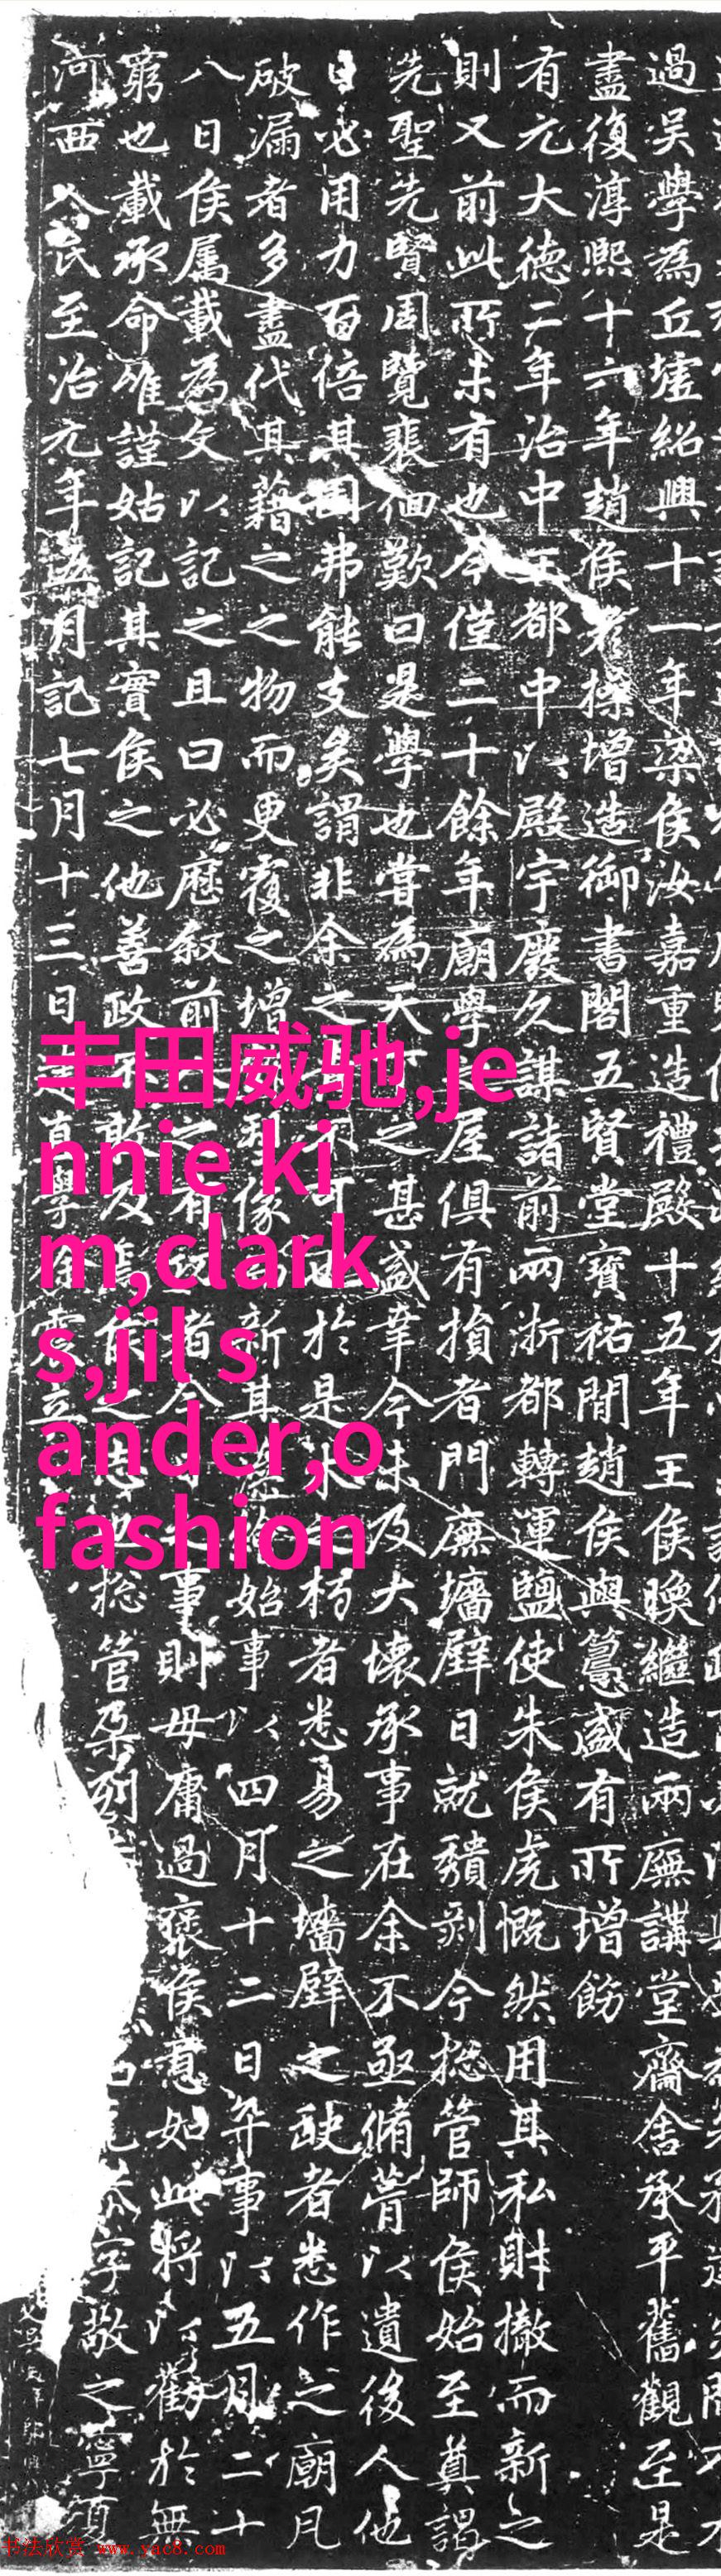 過吴學為丘墟紹興十一年梁侯汝嘉重造禮殿十五年王侯㬇繼造兩廡講堂齋舍承平舊觀至是
盡復淳熙十六年趙侯彥操增造御書閣五賢堂寶祐間趙侯與𥲅盛有所增飭
有元大德二年治中王都中以殿宇廢久謀諸前兩浙都轉運鹽使朱侯虎慨然用其私財撤而新之
則又前此所未有也今僅二十餘年廟學屋俱有損者門廡墻壁日就穨剥今捴管師侯始至奠謁
先聖先賢周覽裴佪歎曰是學也嘗為天下之甚盛幸今未及大壞承事在余不亟脩葺以遺後人他
日必用力百倍其困弗能支矣謂非余之不可於是木朽者悉易之墻壁之缺者悉作之廟凡
破漏者多盡代其藉之之物而更覆之增像新其始事以四月十二日弅事以五月二十
八日侯属載為文以記之且曰必歷叙前之有者今事則毋庸過褒侯意如此將以勸於無
窮也載承命惟謹姑記其實侯之他善政不敢及焉侯之捴管朶列字敬之寧
河西人氏至治元年五月記七月十三日直學立
丰田威驰,je
nnie ki
m,clark
s,jil s
ander,o
fashion
书法欣赏 www.yac8.com